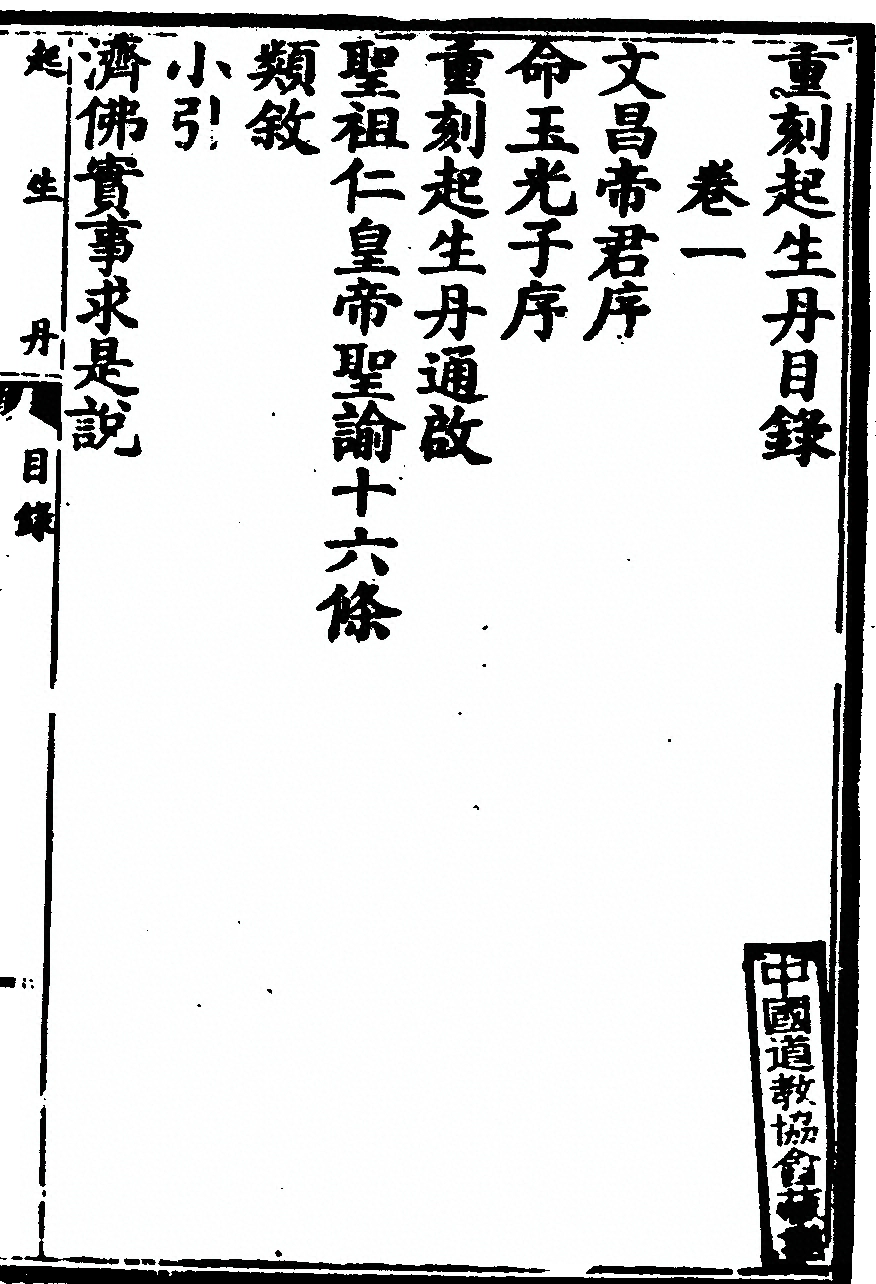 重刻起生丹目錄
卷一
文昌帝君序
命玉光子序
重刻起生丹通啟
聖祖仁皇帝聖諭十六條
類敘
小引
濟佛實事求是說
起生丹
目錄
中國道教協會藏